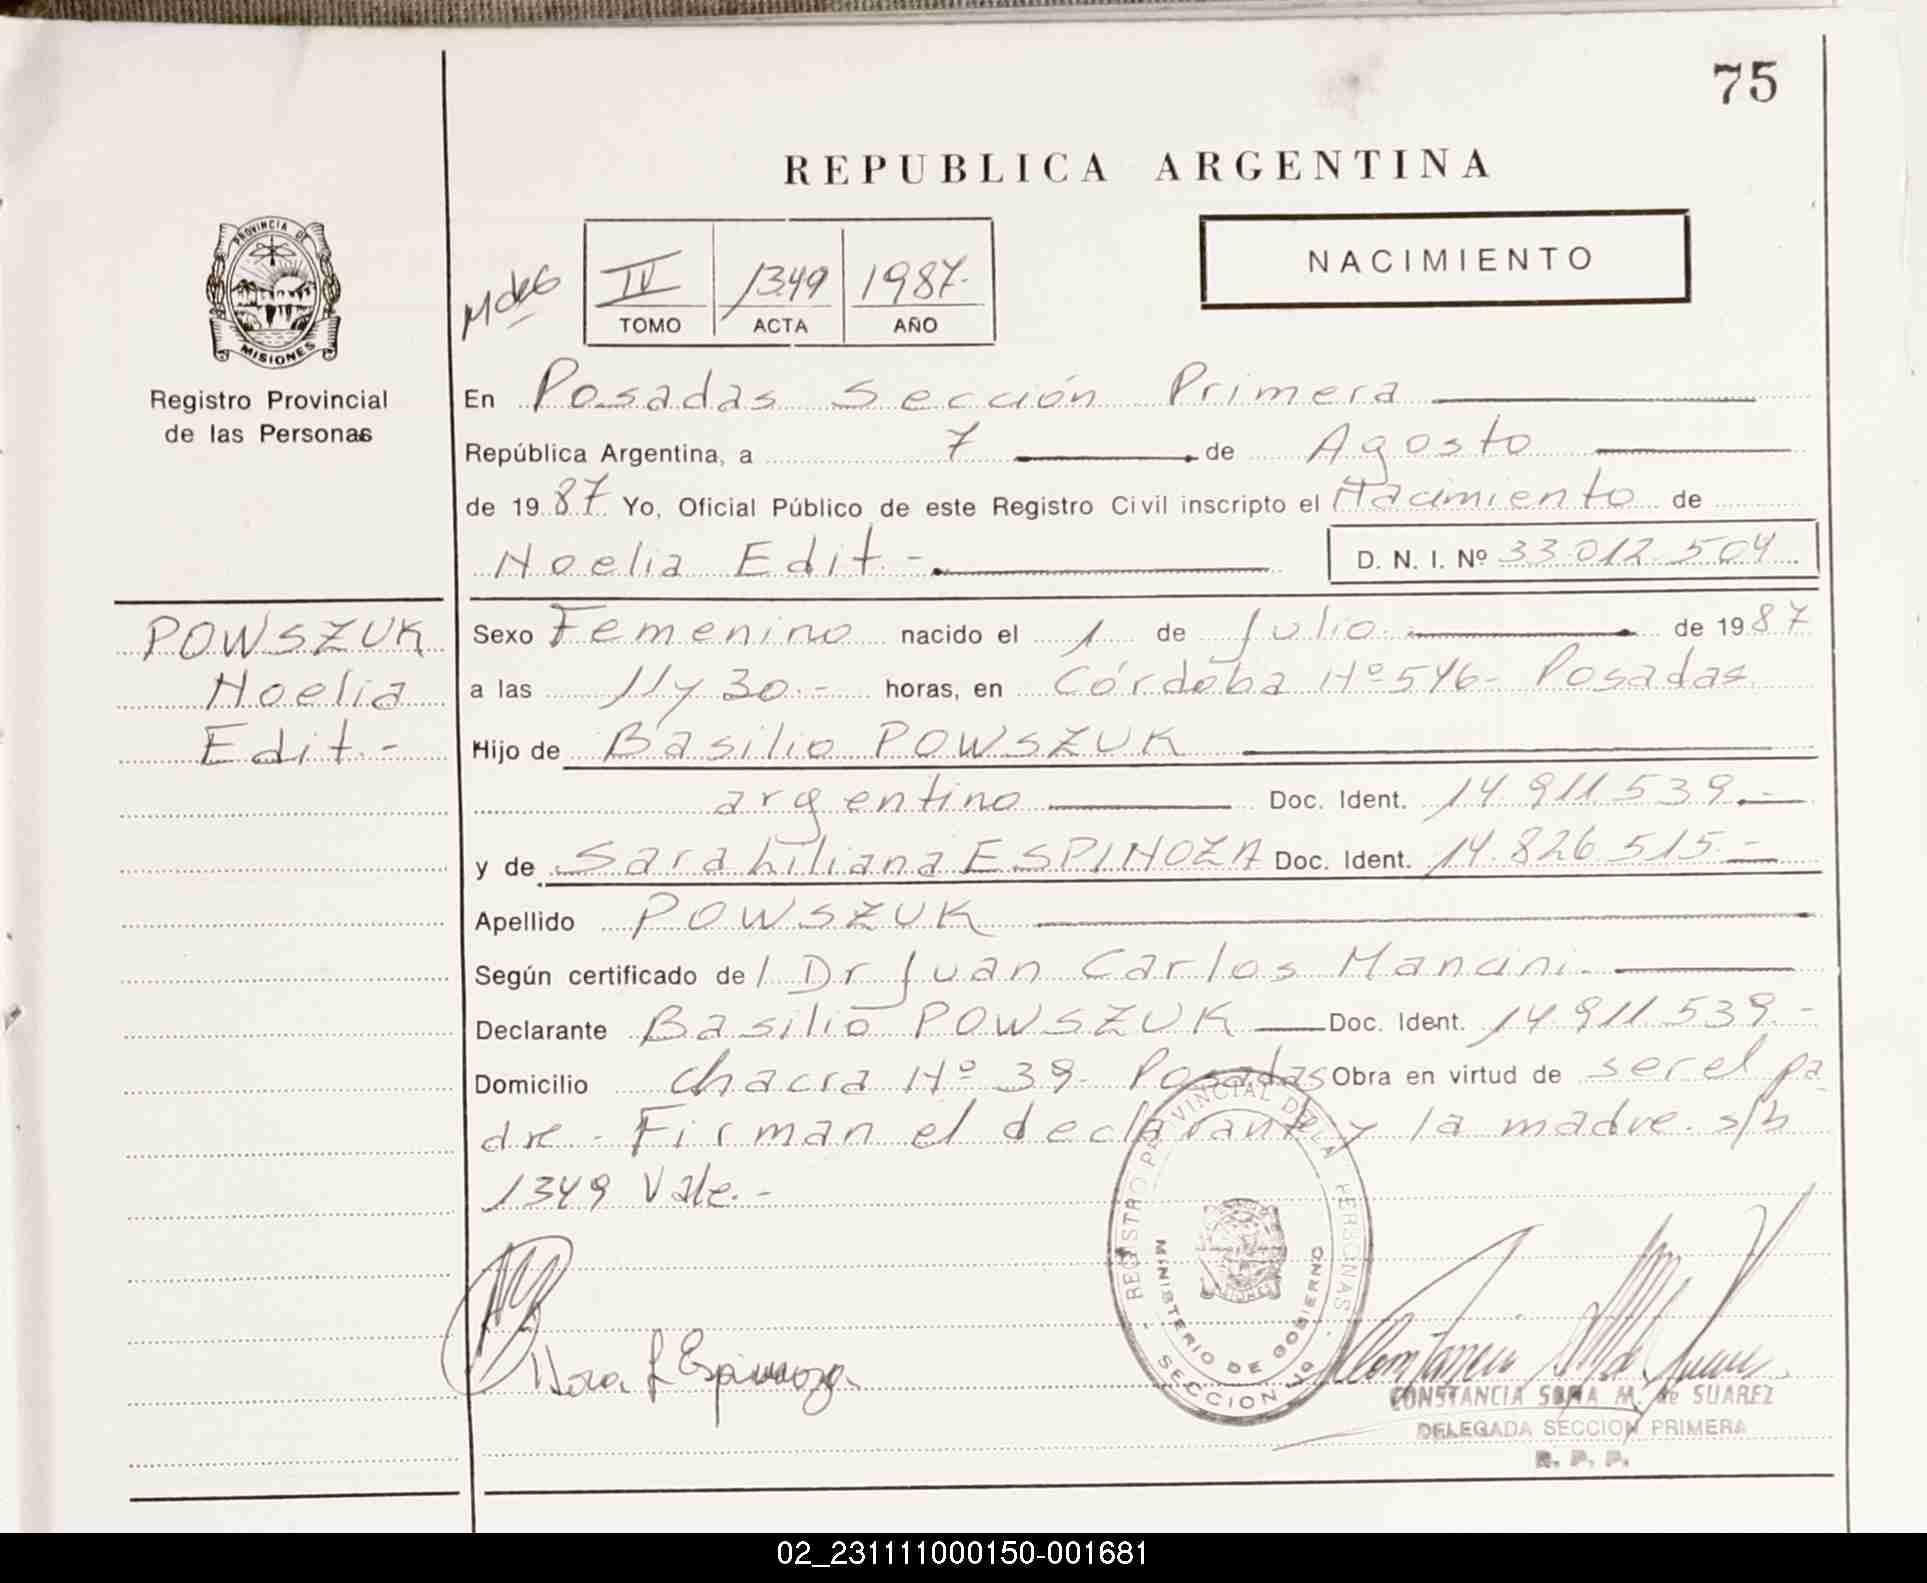 75
REPUBLICA ARGENTINA
PROVINCIA DE
MISIONES
Registro Provincial
de las Personas
IV 1349 1987.
TOMO ACTA AÑO
NACIMIENTO
En Posadas Sección Primera
República Argentina, a 7 de Agosto
de 1987 Yo, Oficial Público de este Registro Civil inscripto el Nacimiento de
Noelia Edit.- D. N. I. Nº 33.012.504
POWSZUK
Noelia
Edit.-
Sexo Femenino nacido el 1 de Julio. de 1987
a las 11 y 30.- horas, en Córdoba Nº 546- Posadas
Hijo de Basilio POWSZUK
argentino Doc. Ident. 14.911.539.-
y de Sara Liliana ESPINOZA Doc. Ident. 14.826.515.-
Apellido POWSZUK
Según certificado del Dr Juan Carlos Mancini.
Declarante Basilio POWSZUK Doc. Ident. 14.911.539.-
Domicilio Chacra Nº 39- Posadas Obra en virtud de ser el pa
dre. Firman el declarante y la madre. s/b
1349 Vale.-
REGISTRO PROVINCIAL DE LA PERSONAS
MINISTERIO DE GOBIERNO
SECCION 1º
MISIONES
Espinoza
CONSTANCIA SARA M. de SUAREZ
DELEGADA SECCION PRIMERA
R. P. P.
02_231111000150-001681